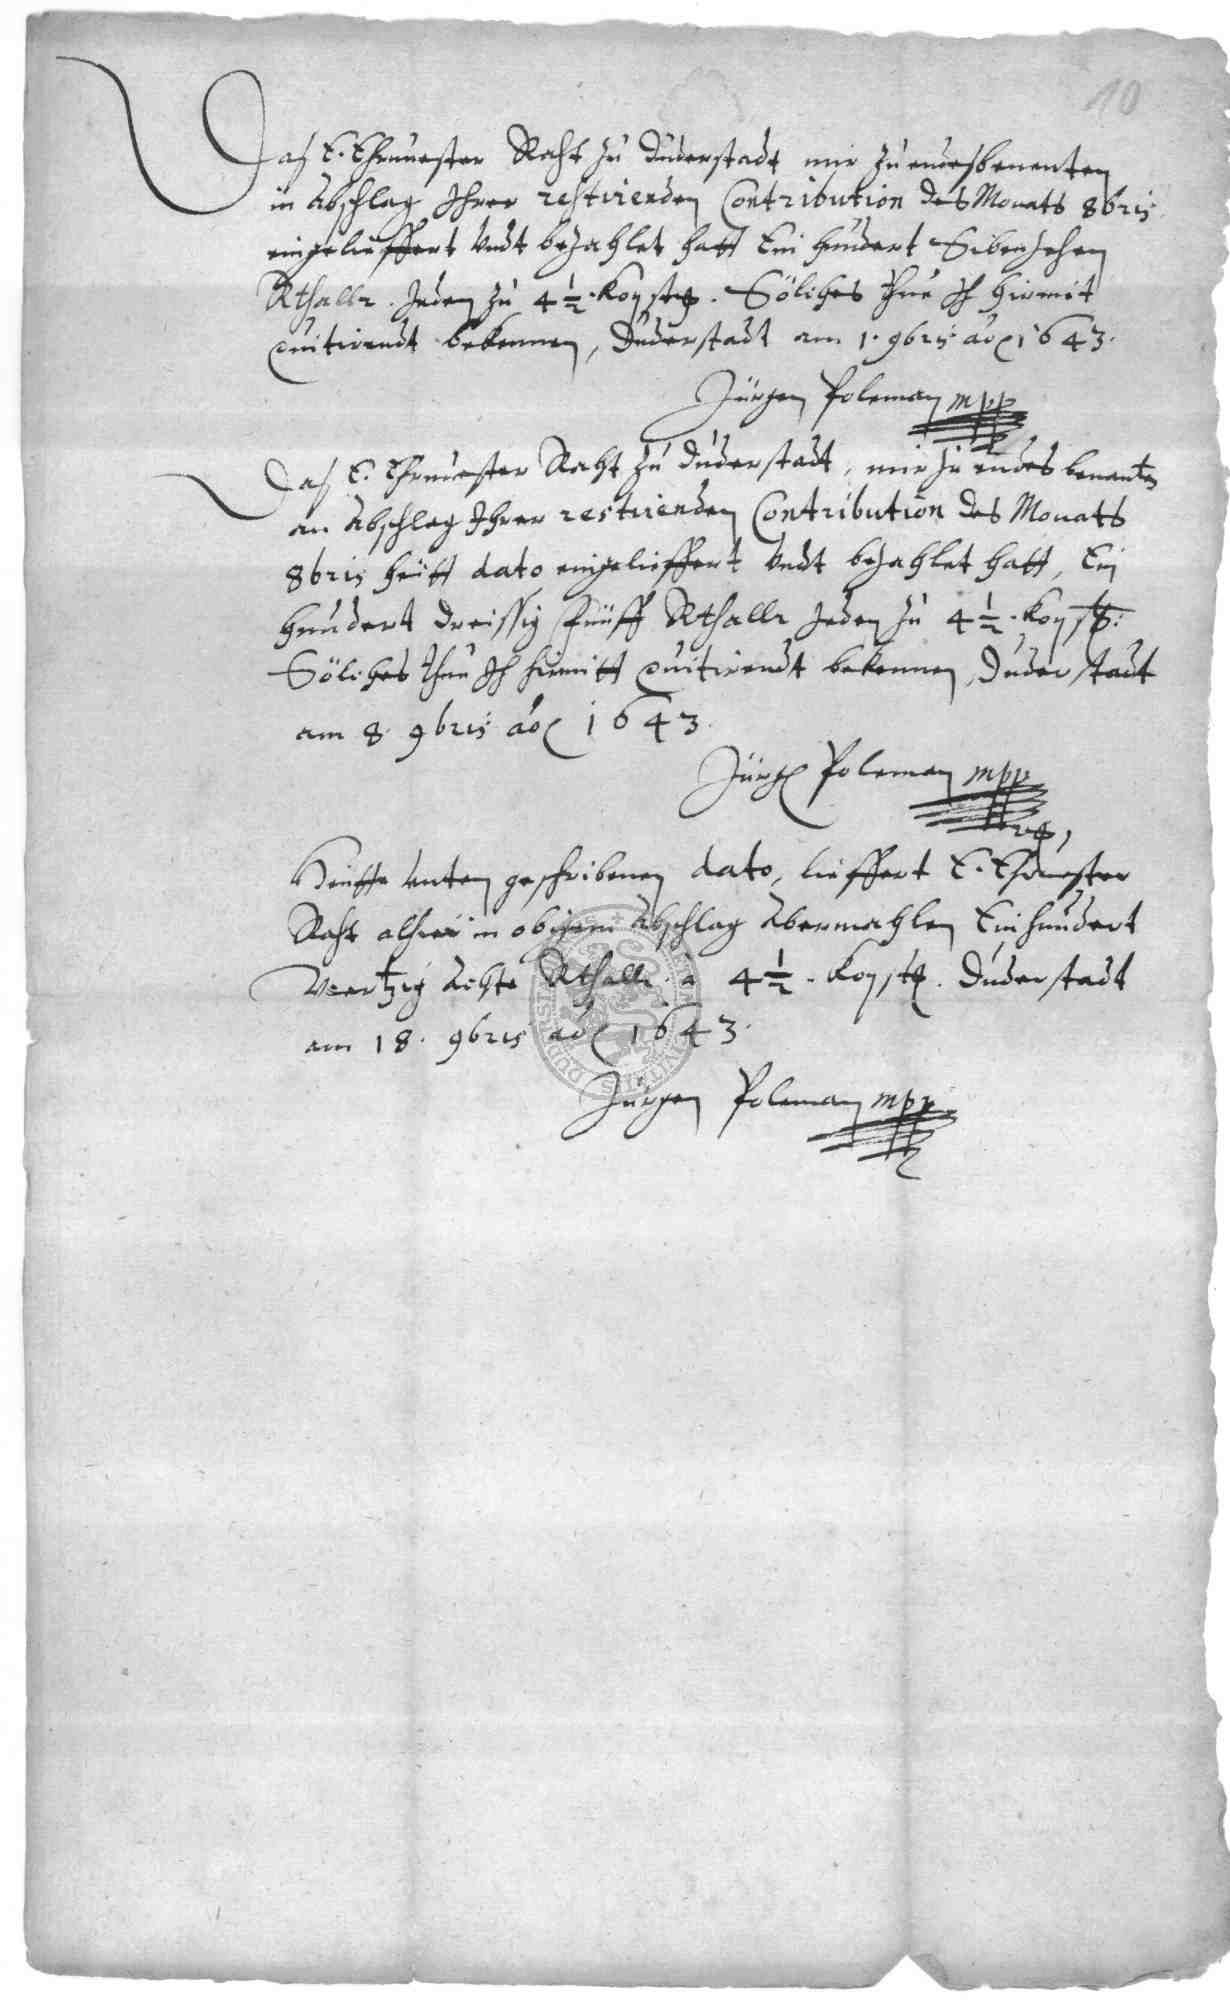 10
Daß E. Ehrnuester Raht zu Duderstadt mir zu endesbenenten
in Abschlag Ihrer restirenden Contribution des Monats 8bris
eingelieffert Undt bezahlet hatt Ein hundert Sibenzehen
Rthallr. Jeden zu 4 1/2 Kopst. Söliches thue Ich hirmit
quitirendt bekennen, Duderstadt am 1. 9bris ao 1643.
Jürgen Poleman mpp
Daß E. Ehrnuester Raht zu Duderstadt, mir zu endes benanten
an Abschlag Ihrer restirenden Contribution des Monats
8bris heütt dato eingelieffert Undt bezahlet hatt, Ein
hundert dreissig Fünff Rthallr Jeden zu 4 1/2 Kopst:
Söliches thue Ich hirmitt quitirendt bekennen, Duderstadt
am 8. 9bris ao 1643.
Jürgen Poleman mpp
Heütte Unten geschribenen dato, lieffert E. Ehrnuester
Raht alhier in obigem Abschlag Abermahlen Ein hundert
Viertzig Achte Rthallr. a 4 1/2 Kopst. Duderstadt
am 18. 9bris ao 1643.
Jürgen Poleman mpp